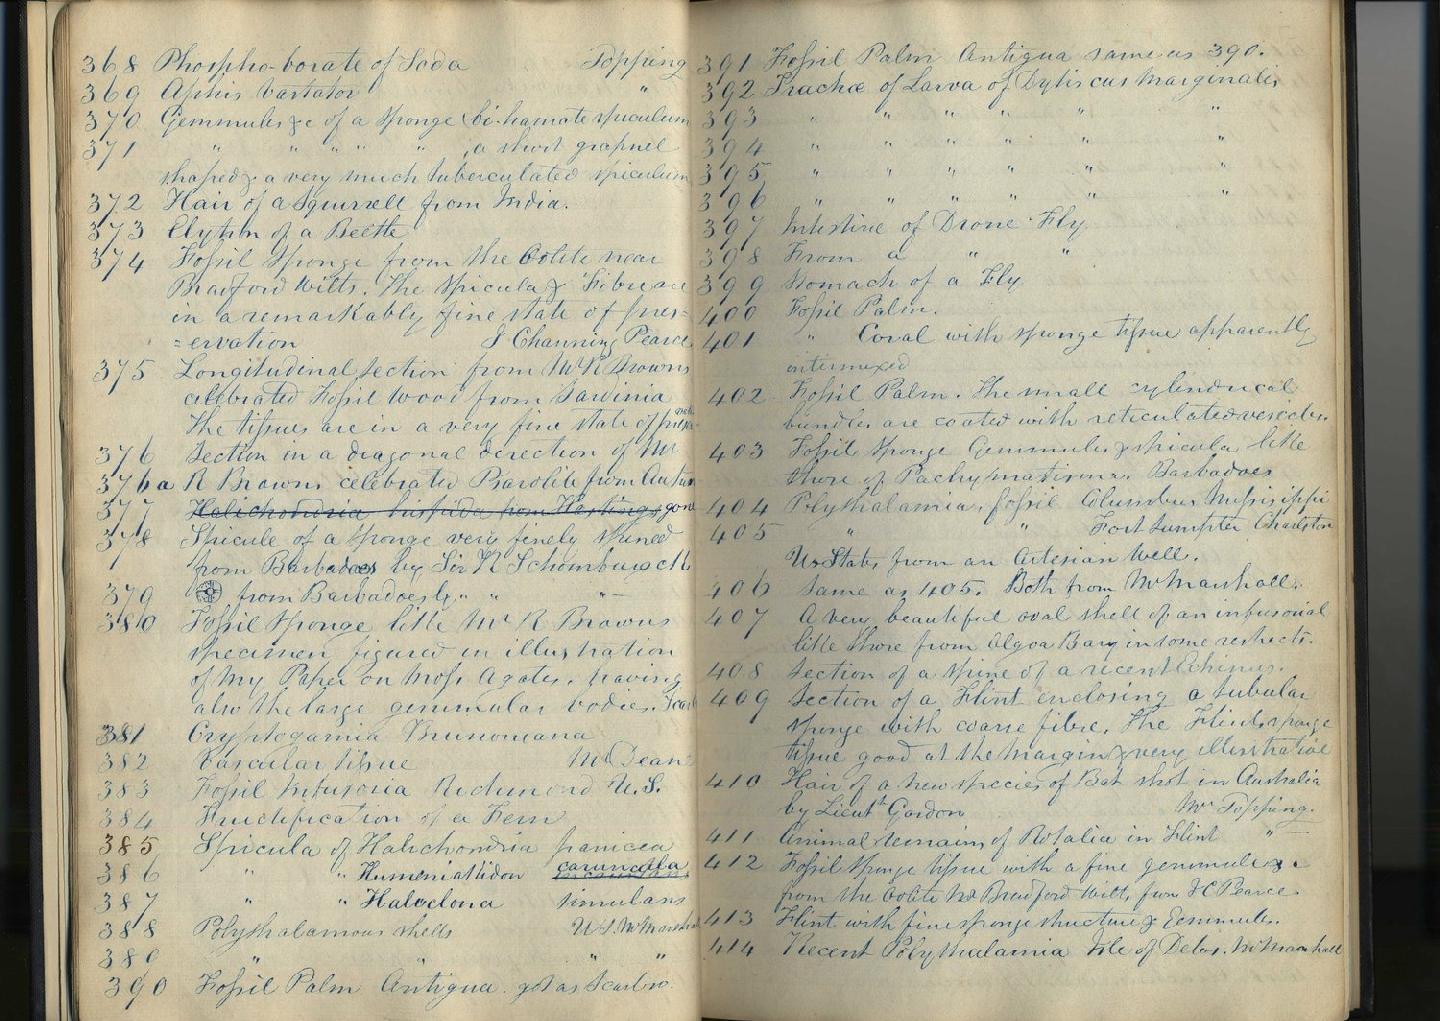 368 Phospho-borate of Soda Topping
369 Aphis Vastator "
370 Gemmules &c of a Sponge (bi-hamate spiculum
371 " " " " " , a short grapnel
shaped & a very much tuberculated spiculum
372 Hair of a Squirrell from India.
373 Elytrin of a Beetle
374 Fossil Sponge from the Oolite near
Bradford Wilts. The Spicula & Fibre are
in a remarkably fine state of pres=
=ervation J Channing Pearce
375 Longitudinal section from Mr R Browns
celebrated Fossil Wood from Sardinia
The tissues are in a very fine state of
376 Section in a diagonal direction of Mr
376a R Browns celebrated from
377 Halichondria hispida from Hastings gone
378 Spicule of a Sponge very finely spined
from Barbadoes by Sir R Schomburgck
379 from Barbadoes by " " "
380 Fossil Sponge like Mr R Browns
specimen figured in illustration
of my Paper on Moss Agates, having
also the large gemmular bodies.
381 Cryptogamia Brunoniana
382 Vascular tissue Mr Dean
383 Fossil Infusoria Richmond U.S.
384 Fructification of a Fern
385 Spicula of Halichondria panicea
386 " " Hymeniacidon caruncula
387 " " Haloclona simulans
388 Polythalamous shells U S Mr Marshall
389 " " "
390 Fossil Palm Antigua got as Scarbro
391 Fossil Palm Antigua same as 390.
392 Trachæ of Larva of Dytiscus Marginalis
393 " " " " " "
394 " " " " " "
395 " " " " " "
396 " " " " " "
397 Intestine of Drone Fly
398 From a " "
399 Stomach of a Fly
400 Fossil Palm.
401 " Coral with sponge tissue apparently
intermixed
402 Fossil Palm. The small cylindrical
bundles are coated with reticulated vesicles.
403 Fossil Sponge Gemmules & spicula like
those of Pachymatisma. Barbadoes
404 Polythalamia, fossil Columbus Mississippi
405 " " Fort Sumpter Charlston
U. States from an Artesian Well.
406 Same as 405. Both from Mr Marshall.
407 A very beautiful oval shell of an infusorial
like those from Algoa Bay in some respects.
408 Section of a spine of a recent Echinus.
409 Section of a Flint enclosing a tubular
sponge with coarse fibre. The Flint sponge
tissue good at the margin & very illustrative
410 Hair of a new species of Bat shot in Australia
by Lieut Gordon Mr Topping.
411 Animal remains of Rotalia in Flint "
412 Fossil Sponge tissue with a fine gemmule &c
from the Oolite Nr Bradford Wilts, from J C Pearce
413 Flint with fine sponge structure & Gemmule.
414 Recent Polythalamia Isle of Delos. Mr Marshall